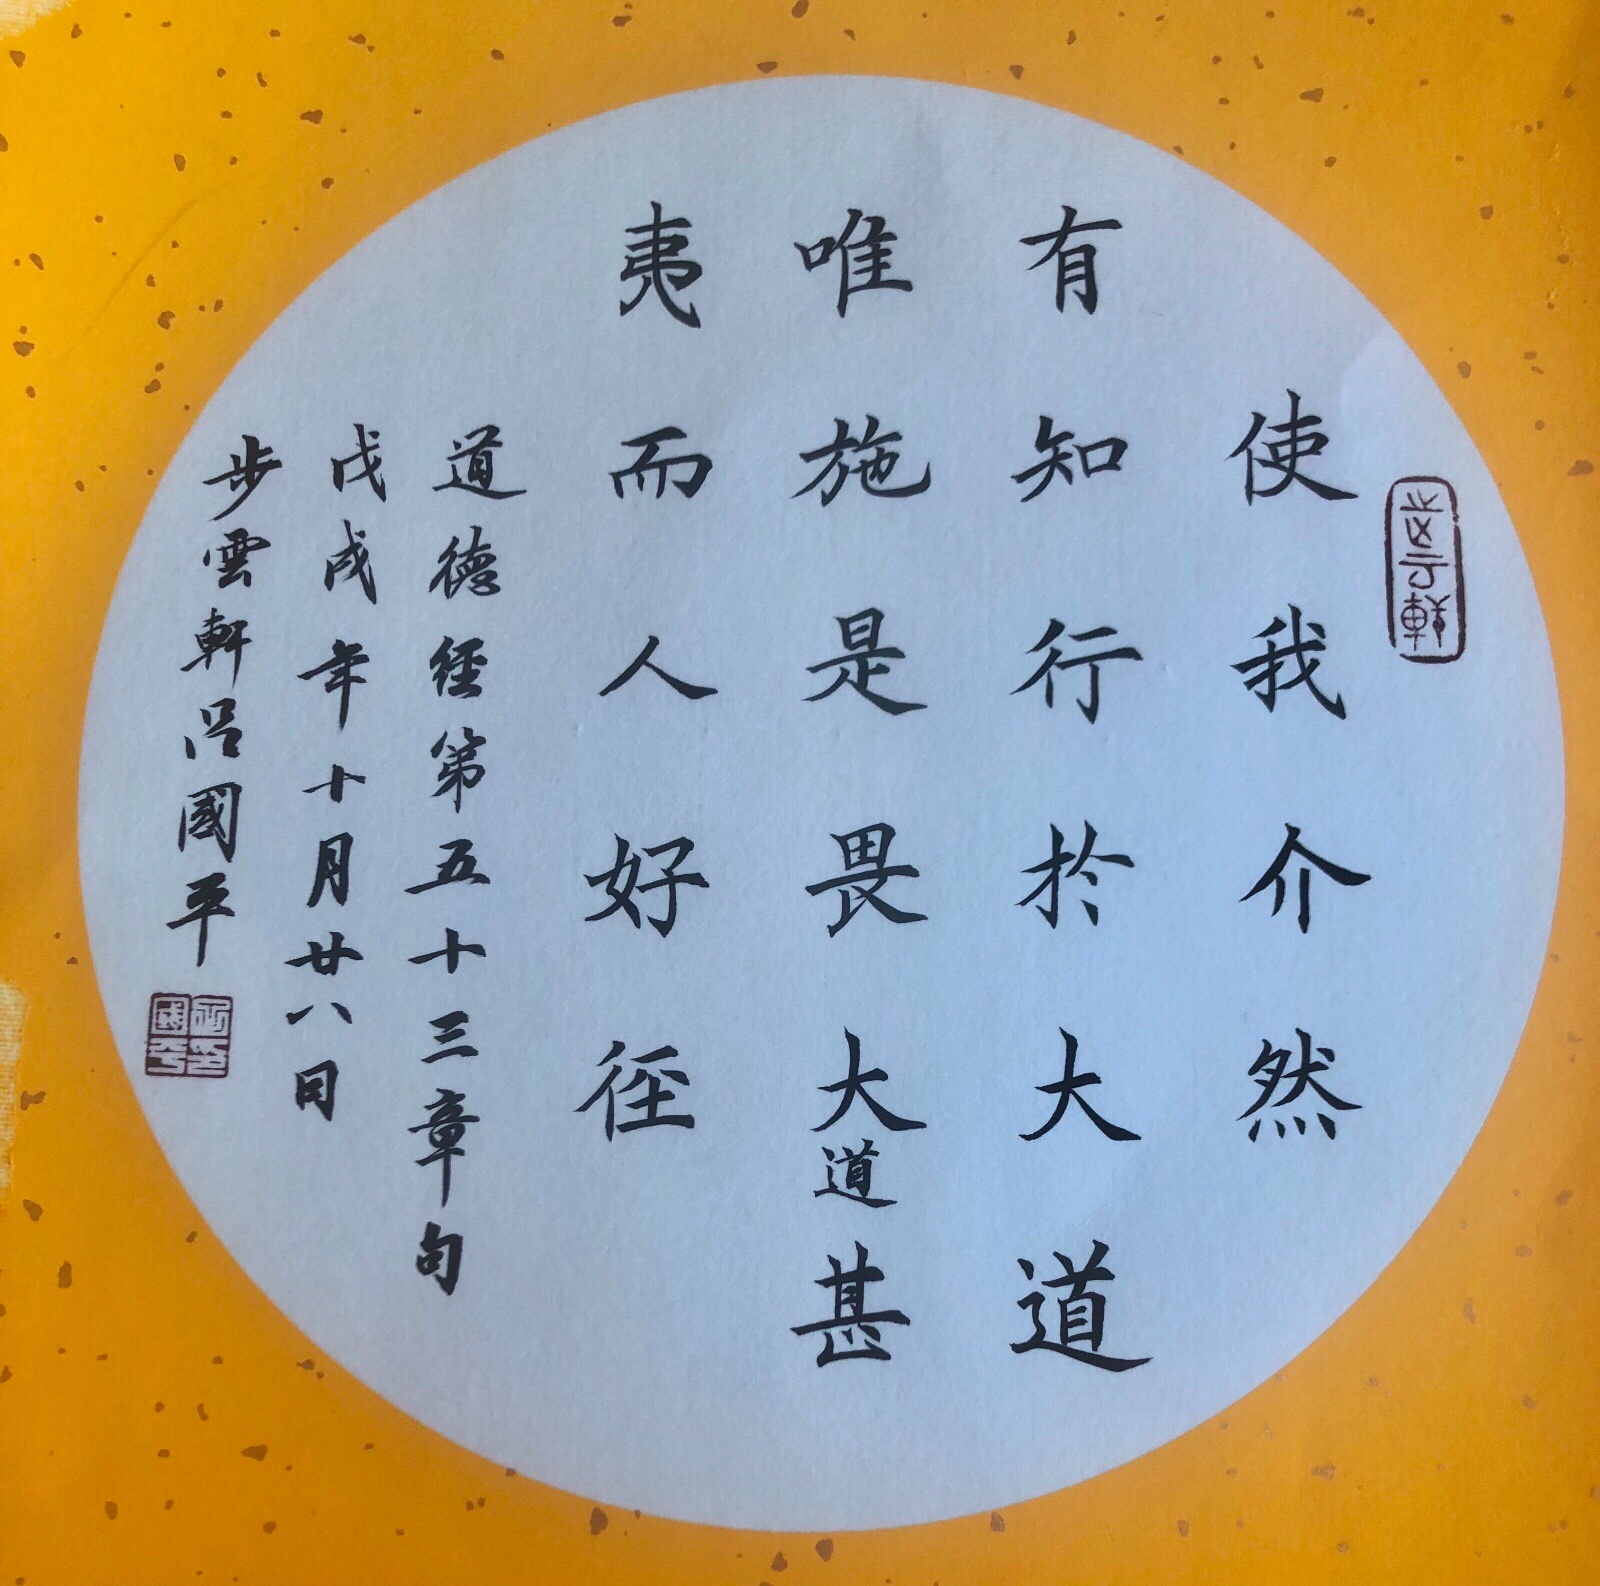 使我介然
有知行於大道
唯施是畏大道甚
夷而人好径
道德经第五十三章句
戊戌年十月廿八日
步雲軒吕國平
步雲軒